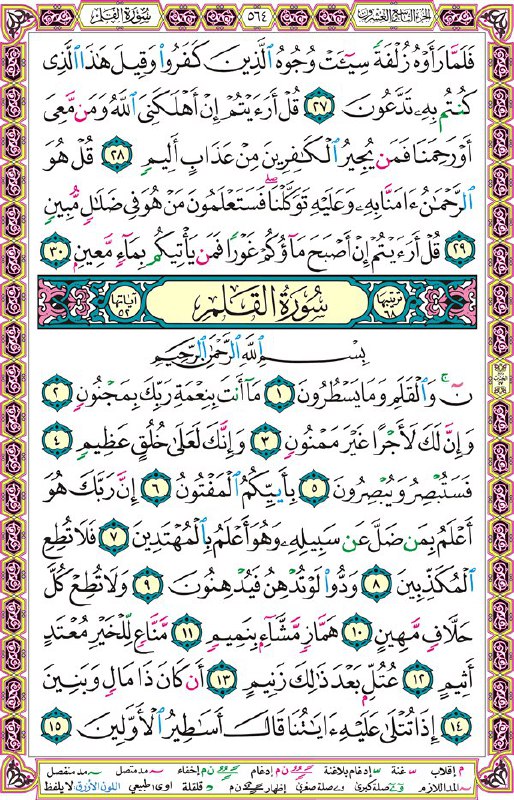 الجزء التاسع والعشرون ٥٦٤ سورة القلم
فَلَمَّا رَأَوْهُ زُلْفَةً سِيٓـَٔتْ وُجُوهُ ٱلَّذِينَ كَفَرُوا۟ وَقِيلَ هَٰذَا ٱلَّذِى
كُنتُم بِهِۦ تَدَّعُونَ ٢٧ قُلْ أَرَءَيْتُمْ إِنْ أَهْلَكَنِىَ ٱللَّهُ وَمَن مَّعِىَ
أَوْ رَحِمَنَا فَمَن يُجِيرُ ٱلْكَٰفِرِينَ مِنْ عَذَابٍ أَلِيمٍ ٢٨ قُلْ هُوَ
ٱلرَّحْمَٰنُ ءَامَنَّا بِهِۦ وَعَلَيْهِ تَوَكَّلْنَا ۖ فَسَتَعْلَمُونَ مَنْ هُوَ فِى ضَلَٰلٍ مُّبِينٍ
٢٩ قُلْ أَرَءَيْتُمْ إِنْ أَصْبَحَ مَآؤُكُمْ غَوْرًا فَمَن يَأْتِيكُم بِمَآءٍ مَّعِينٍۭ ٣٠
ترتيبها ٦٨ سُورَةُ القَلَمِ آياتها ٥٢
بِسْمِ ٱللَّهِ ٱلرَّحْمَٰنِ ٱلرَّحِيمِ
نٓ ۚ وَٱلْقَلَمِ وَمَا يَسْطُرُونَ ١ مَآ أَنتَ بِنِعْمَةِ رَبِّكَ بِمَجْنُونٍ ٢
وَإِنَّ لَكَ لَأَجْرًا غَيْرَ مَمْنُونٍ ٣ وَإِنَّكَ لَعَلَىٰ خُلُقٍ عَظِيمٍ ٤
فَسَتُبْصِرُ وَيُبْصِرُونَ ٥ بِأَييِّكُمُ ٱلْمَفْتُونُ ٦ إِنَّ رَبَّكَ هُوَ
أَعْلَمُ بِمَن ضَلَّ عَن سَبِيلِهِۦ وَهُوَ أَعْلَمُ بِٱلْمُهْتَدِينَ ٧ فَلَا تُطِعِ
ٱلْمُكَذِّبِينَ ٨ وَدُّوا۟ لَوْ تُدْهِنُ فَيُدْهِنُونَ ٩ وَلَا تُطِعْ كُلَّ
حَلَّافٍ مَّهِينٍ ١٠ هَمَّازٍ مَّشَّآءٍۭ بِنَمِيمٍ ١١ مَّنَّاعٍ لِّلْخَيْرِ مُعْتَدٍ
أَثِيمٍ ١٢ عُتُلٍّۭ بَعْدَ ذَٰلِكَ زَنِيمٍ ١٣ أَن كَانَ ذَا مَالٍ وَبَنِينَ
١٤ إِذَا تُتْلَىٰ عَلَيْهِ ءَايَٰتُنَا قَالَ أَسَٰطِيرُ ٱلْأَوَّلِينَ ١٥
م إقلاب س غنة إدغام بلاغنة ن م إدغام ن م إخفاء مد متصل مد منفصل
المد اللازم صلة كبرى صلة صغرى إظهار ن م قلقلة اوى طبيعي اللون الأزرق لا يلفظ